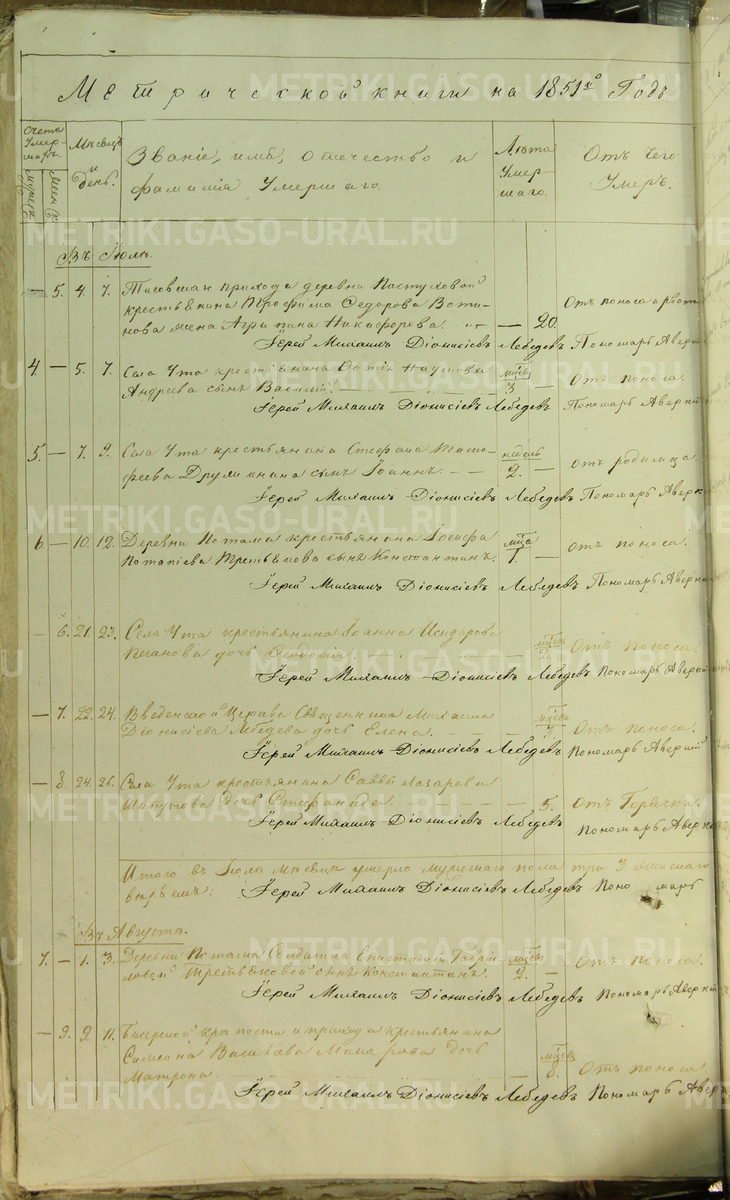 METRIKI.GASO-URAL.RU
Метрической книги на 1851й Годъ
Счетъ Умершихъ.
мужеск.
женск.
Мѣсяцъ и день.
Званіе, имя, отечество и фамилія Умершаго.
Лѣта Умершаго.
Отъ чего Умеръ.
Въ Іюлѣ.
— 5. 4. 7. прихода деревни Пастуховой
крестьянина Трофима Федорова Воти-
нова жена Агрипина Никифорова. — 20. Отъ поноса и рвоты
Іерей Михаилъ Діонисіевъ Лебедевъ Пономарь Аверкій
4. — 5. 7. Села Ута крестьянина Наумова
Андреева сынъ Василій. мѣсяц. 3 — Отъ поноса.
Іерей Михаилъ Діонисіевъ Лебедевъ Пономарь Аверкій
5. — 7. 9. Села Ута крестьянина Стефана Тимо-
феева Дружинина сынъ Іоаннъ. — — недель 2. — отъ родимца.
Іерей Михаилъ Діонисіевъ Лебедевъ Пономарь Аверкі
6 — 10. 12. Деревни Потама крестьянина Іосифа
Потапіева Третьякова сынъ Константинъ. мѣсяца 1. — отъ поноса.
Іерей Михаилъ Діонисіевъ Лебедевъ Пономарь Аверкі
— 6. 21. 23. Села Ута крестьянина Іоанна Исидорова
дочь Феодосія. мѣсяц. Отъ поноса.
Іерей Михаилъ Діонисіевъ Лебедевъ Пономарь Аверкій
— 7. 22. 24. Введенской Церкви Священника Михаила
Діонисіева Лебедева дочь Елена. мѣсяц. Отъ поноса.
Іерей Михаилъ Діонисіевъ Лебедевъ Пономарь Аверкій
— 8. 24. 26. Села Ута крестьянина Саввы Лазарева
дочь Стефанида. — — — 5. Отъ Горячки.
Іерей Михаилъ Діонисіевъ Лебедевъ Пономарь Аверкі
Итого въ Іюлѣ мѣсяцѣ умерло мужескаго пола три 3 женскаго
Іерей Михаилъ Діонисіевъ Лебедевъ Пономарь
Въ Августѣ.
7. — 1. 3. Деревни Потама Солдатки
Третьяковой сынъ Константинъ. мѣсяц. 2. — Отъ поноса.
Іерей Михаилъ Діонисіевъ Лебедевъ Пономарь Аверкій
— 9. 9. 11. крѣпости и прихода крестьянина
Симеона Василіева Макарова дочь
Матрона. мѣсяц. 8. Отъ поноса
Іерей Михаилъ Діонисіевъ Лебедевъ Пономарь Аверкі